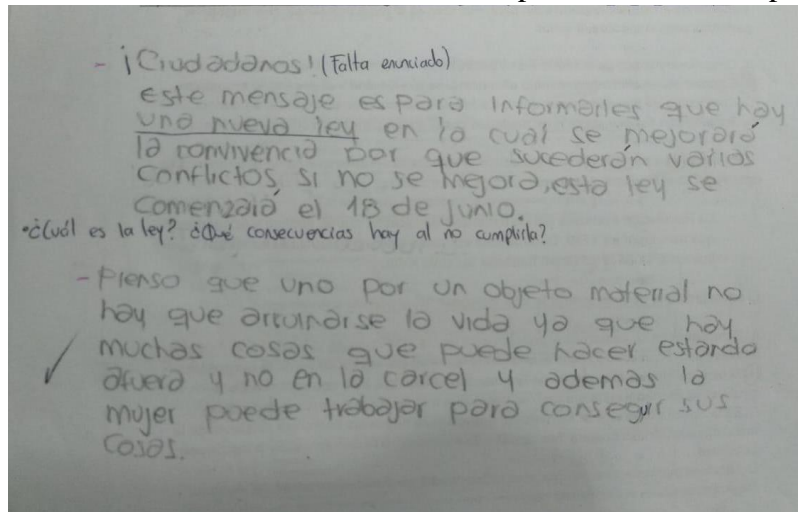 - ¡Ciudadanos! (Falta enunciado)
Este mensaje es para informarles que hay
una nueva ley en la cual se mejorará
la convivencia por que sucederán varios
conflictos, si no se mejora, esta ley se
comenzará el 18 de junio.
• ¿Cuál es la ley? ¿Qué consecuencias hay al no cumplirla?
- Pienso que uno por un objeto material no
hay que arruinarse la vida ya que hay
muchas cosas que puede hacer estando
✓ afuera y no en la carcel y ademas la
mujer puede trabajar para conseguir sus
cosas.